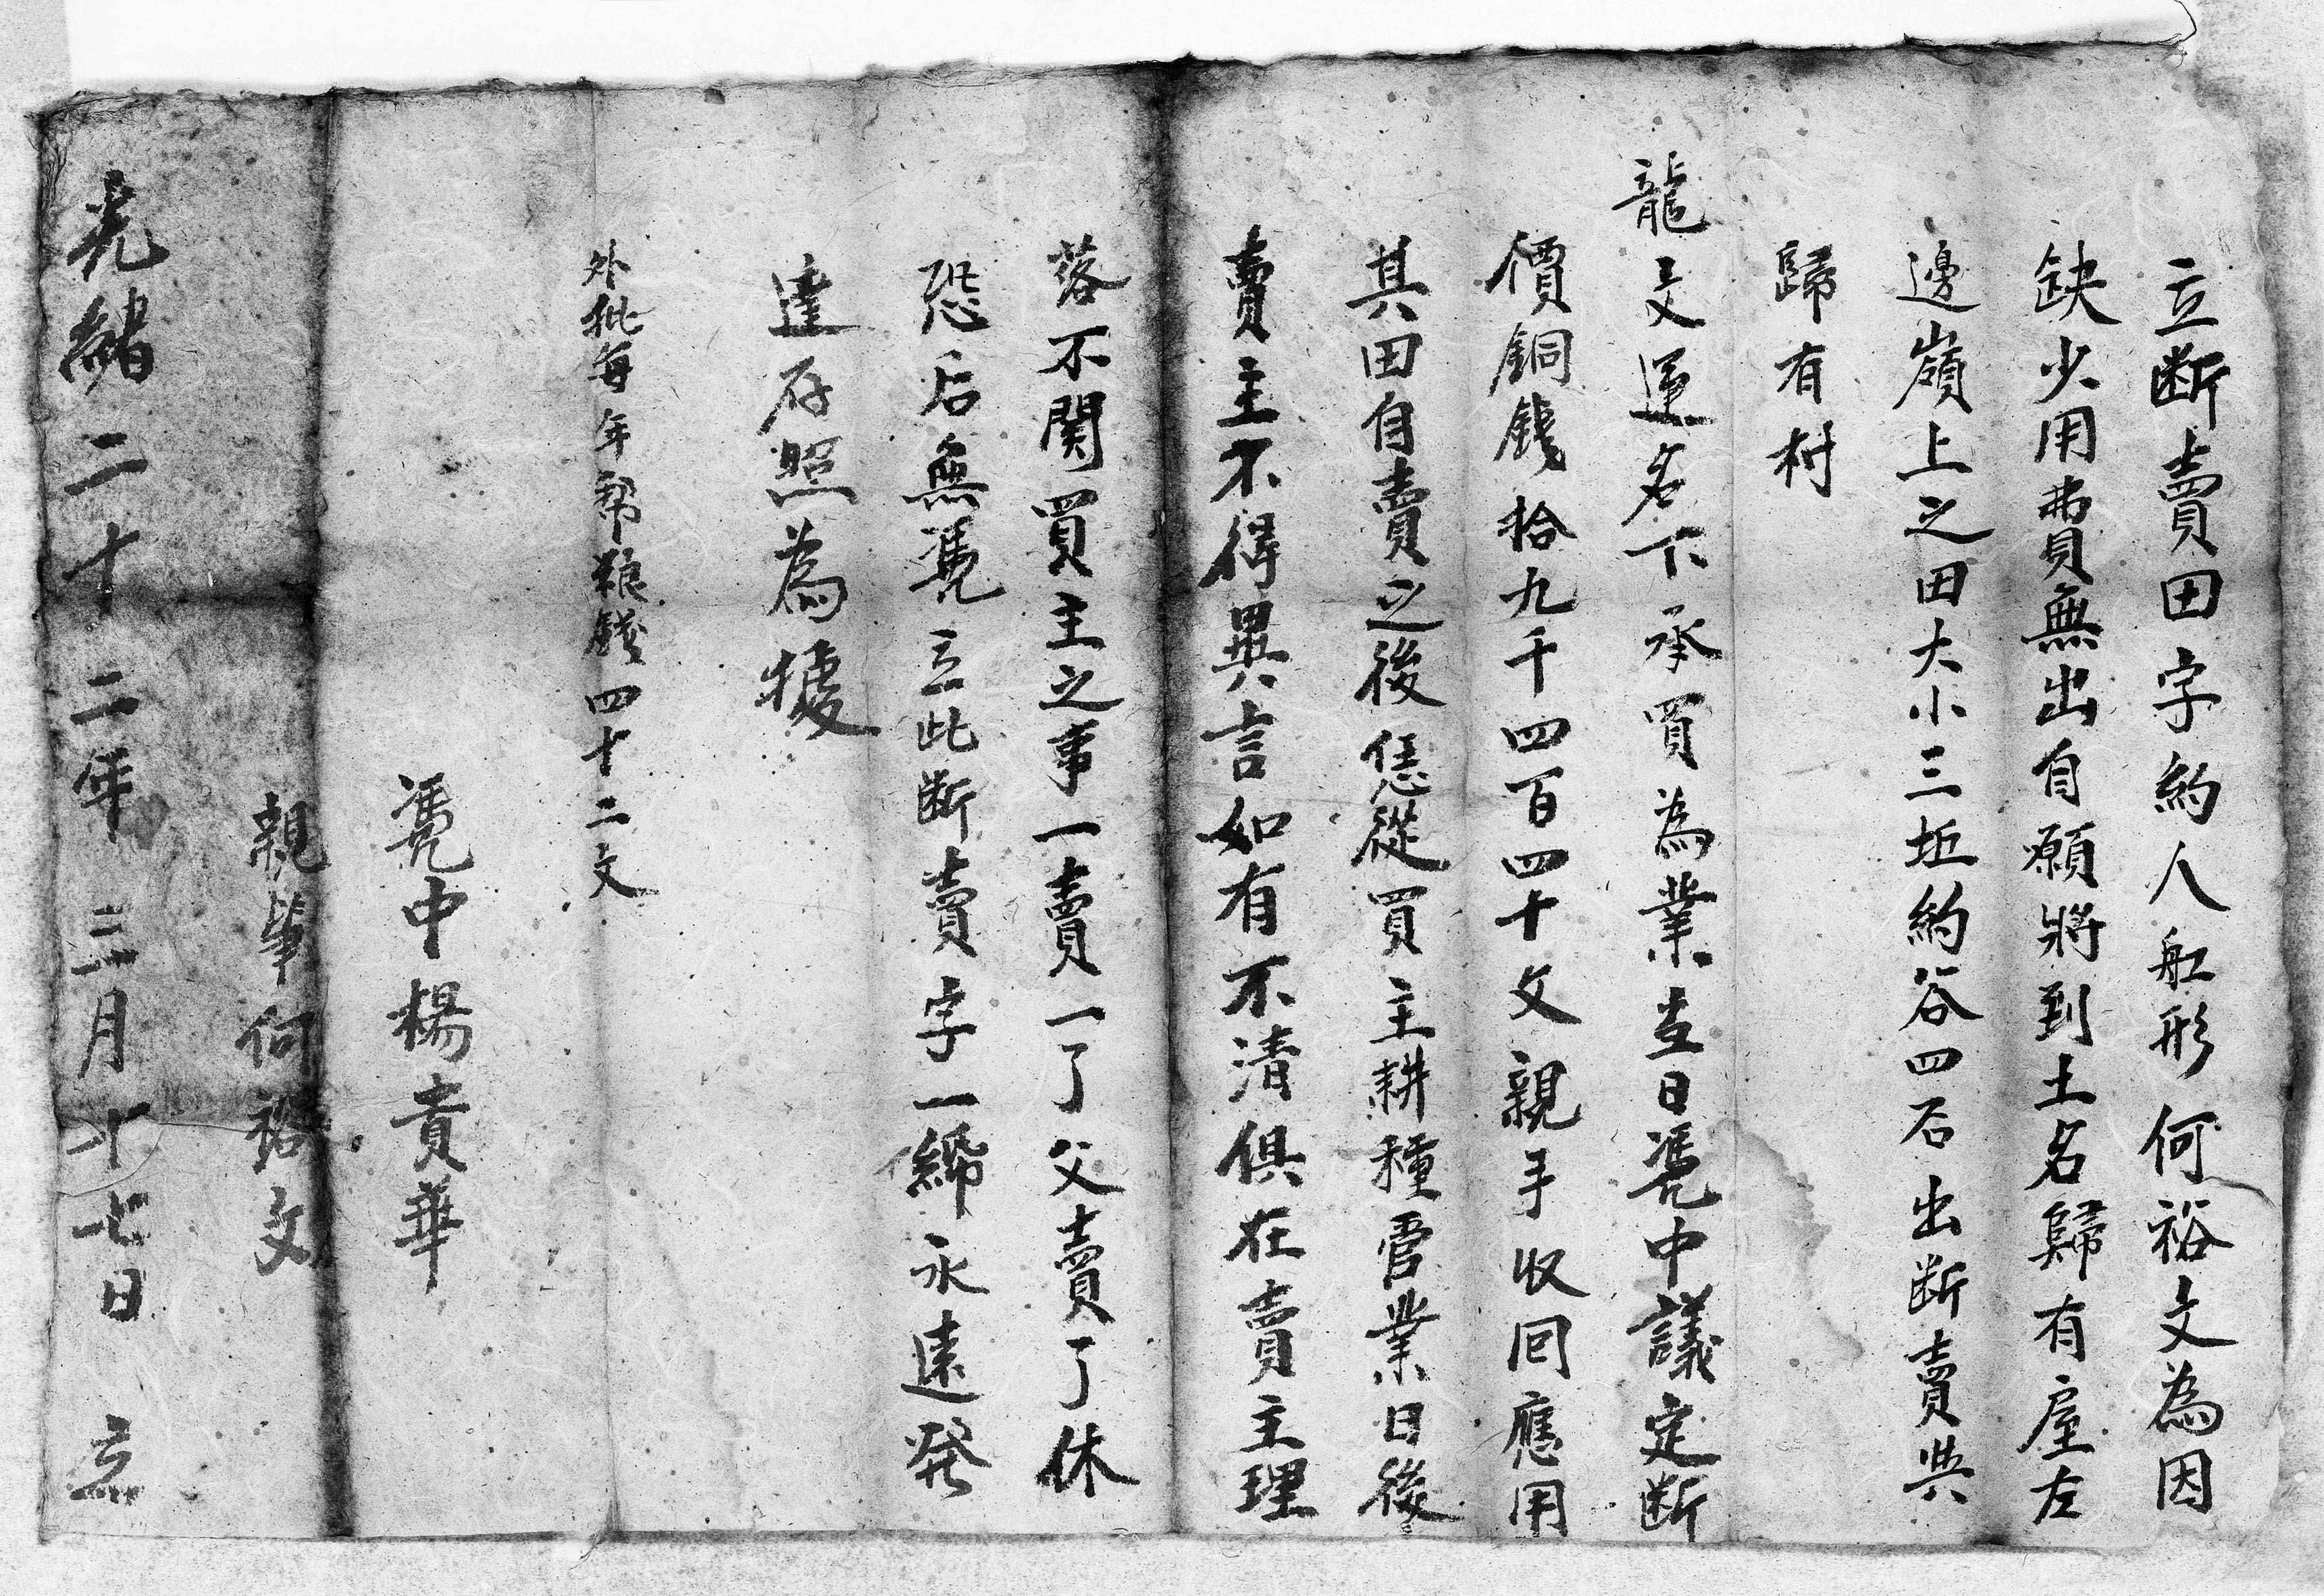 立断賣田字約人舡形何裕文為因
缺少用費無出自願將到土名歸有屋左
邊嶺上之田大小三坵約谷四石出断賣與
歸有村
龍文運名下承買為業当日凴中議定断
價銅錢拾九千四百四十文親手収回應用
其田自賣之後恁從買主耕種管業日後
賣主不得異言如有不清俱在賣主理
落不関買主之事一賣一了父賣了休
恐后無凴立此断賣字一締永遠発
達存照為據
外批每年帮粮錢四十二文
凴中楊貴華
親筆何裕文
光緒二十二年三月十七日立